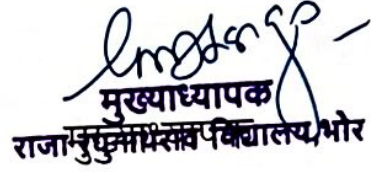 मुख्याध्यापक
राजा रघुनाथराव विद्यालय, भोर